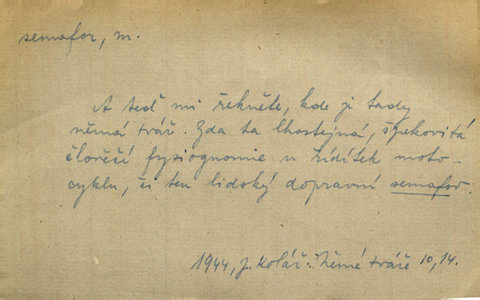 semafor, m.
A teď mi řekněte, kde je tady
němá tvář. Zda ta lhostejná, špekovitá
člověčí fysiognomie u řídítek moto-
cyklu, či ten lidský dopravní semafor.
1944, J. Kolář: Němé tváře 10, 14.